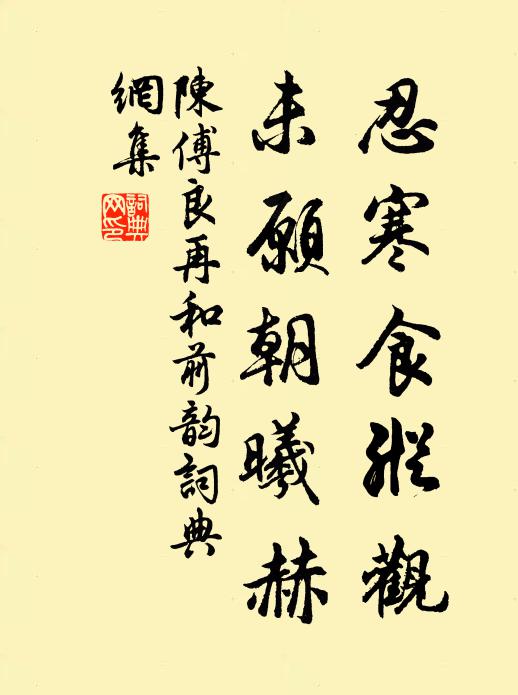 忍寒食縱觀
未願朝曦赫
陳傅良再和前韵詞典
網集
詞典
网印